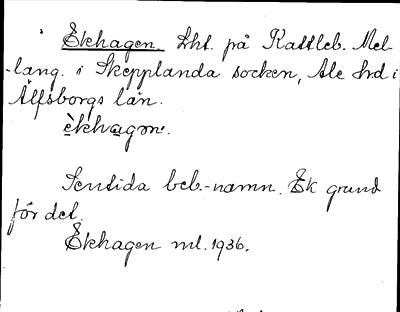 Ekhagen. Lht. på Kattleb. Mel-
-lang. i Skepplanda socken, Ale hrd i
Älfsborgs län.
èkhagơn.
Sentida beb.-namn. Ek grund
för det.
Ekhagen ml. 1936.